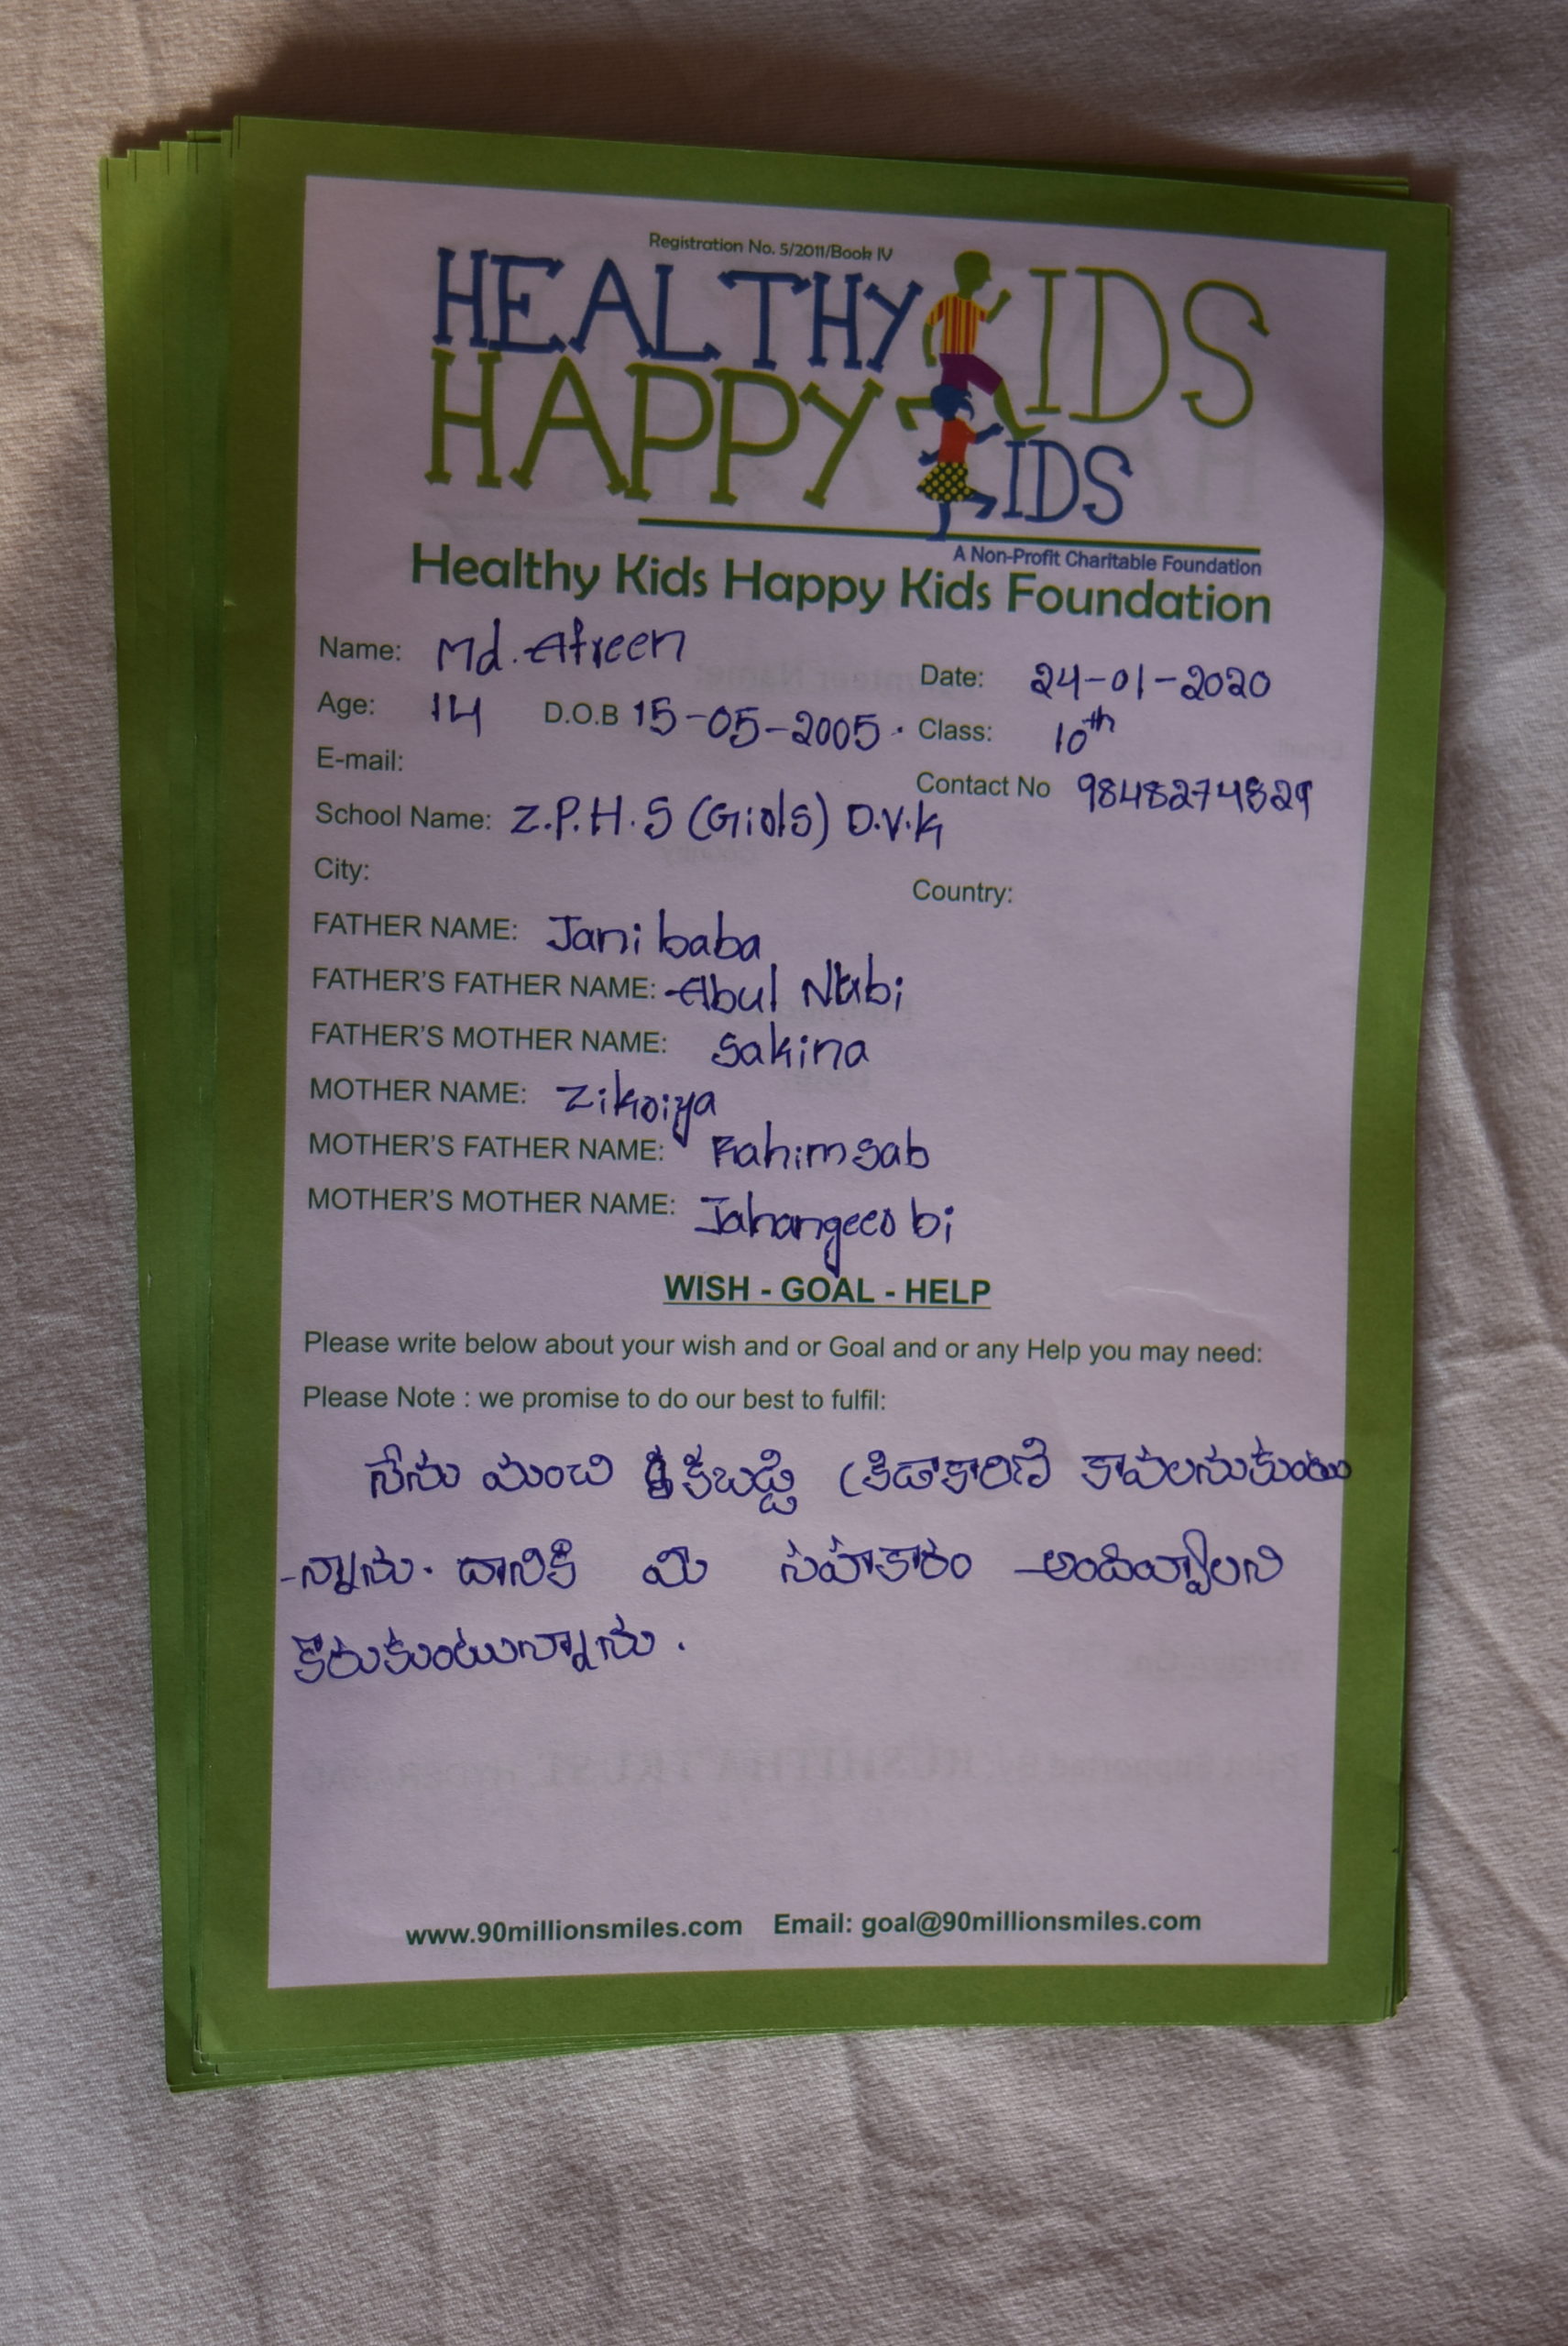 Registration No. 5/2011/Book IV
HEALTHY KIDS
HAPPY KIDS
A Non-Profit Charitable Foundation
Healthy Kids Happy Kids Foundation
Name: Md. Afreen
Date: 24-01-2020
Age: 14 D.O.B 15-05-2005. Class: 10th
E-mail:
Contact No 9848274829
School Name: Z.P.H.S (Girls) D.V.K
City:
Country:
FATHER NAME: Jani baba
FATHER'S FATHER NAME: Abul Nabi
FATHER'S MOTHER NAME: Sakina
MOTHER NAME: Zikriya
MOTHER'S FATHER NAME: Rahimsab
MOTHER'S MOTHER NAME: Jahangeer bi
WISH - GOAL - HELP
Please write below about your wish and or Goal and or any Help you may need:
Please Note : we promise to do our best to fulfil:
నేను మంచి కబడ్డి క్రిడాకారిణి కావలనుకుంటు
-న్నాను. దానికి మి సహకారం అందివ్వాలని
కొరుకుంటున్నాను.
www.90millionsmiles.com Email: goal@90millionsmiles.com